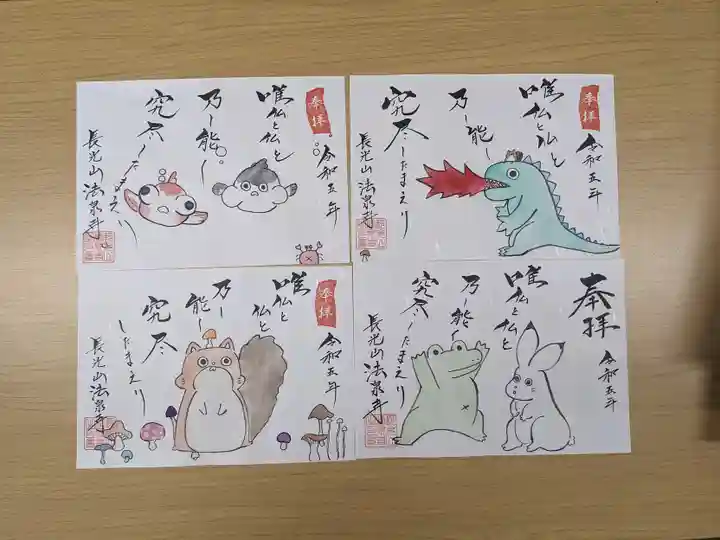 奉拝
令和五年
唯仏と仏と
乃し能し
究尽したまえり
長光山法泉寺
奉拝
令和五年
唯仏と仏と
乃し能し
究尽したまえり
長光山法泉寺
奉拝
令和五年
唯仏と
仏と
乃し
能し
究尽
したまえり
長光山法泉寺
奉拝
令和五年
唯仏と仏と
乃し能し
究尽したまえり
長光山法泉寺